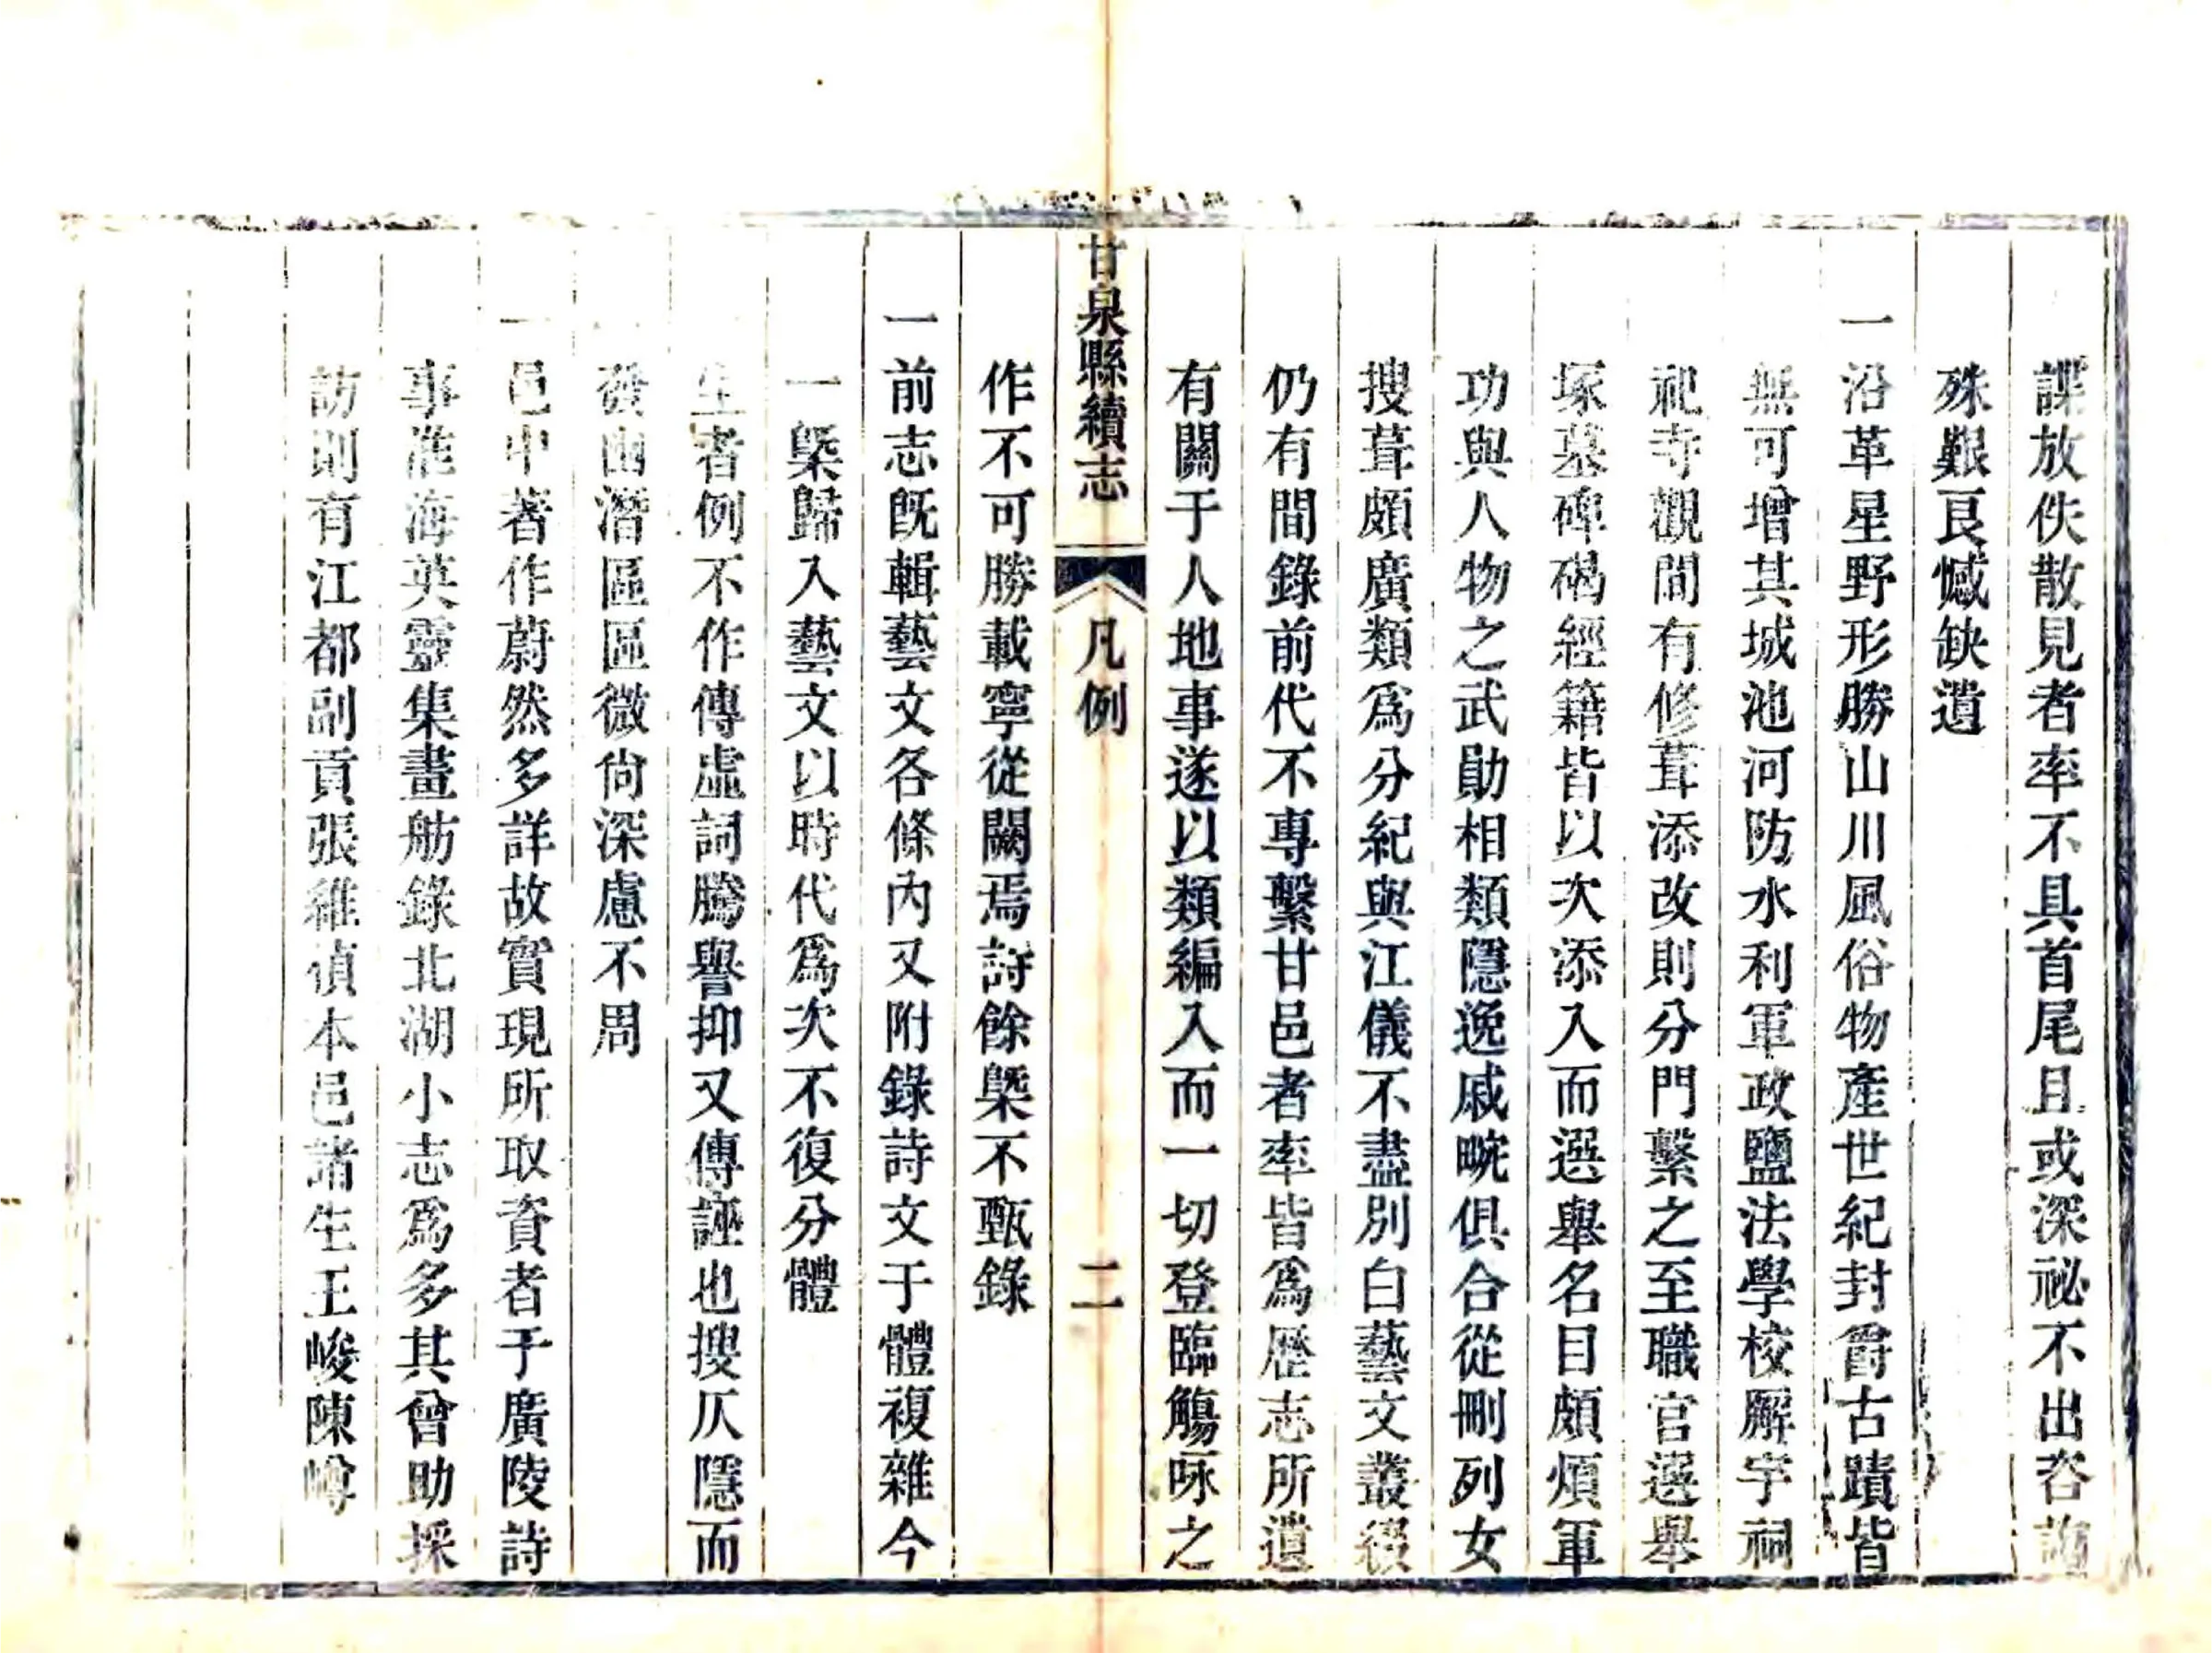 諜放佚散見者率不具首尾且或深祕不出咨詢
殊艱良憾缺遺
一沿革星野形勝山川風俗物產世紀封爵古蹟皆
無可增其城池河防水利軍政鹽法學校廨宇祠
祀寺觀間有修葺添改則分門繫之至職官選舉
塚墓碑碣經籍皆以次添入而選舉名目頗煩軍
功與人物之武勛相類隱逸戚畹俱合從刪列女
搜葺頗廣類為分紀與江儀不盡別白藝文叢猥
仍有間錄前代不專繫甘邑者率皆為歷志所遺
有關于人地事遂以類編入而一切登臨觴咏之
甘泉縣續志 凡例 二
作不可勝載寧從闕焉詩餘槩不甄錄
一前志既輯藝文各條內又附錄詩文于體複雜今
一槩歸入藝文以時代為次不復分體
生者例不作傳虛詞騰譽抑又傳誣也搜仄隱而
發幽潛區區微尙深慮不周
一邑中著作蔚然多詳故實現所取資者于廣陵詩
事淮海英靈集畫舫錄北湖小志為多其曾助採
訪則有江都副貢張維禎本邑諸生王峻陳嶟